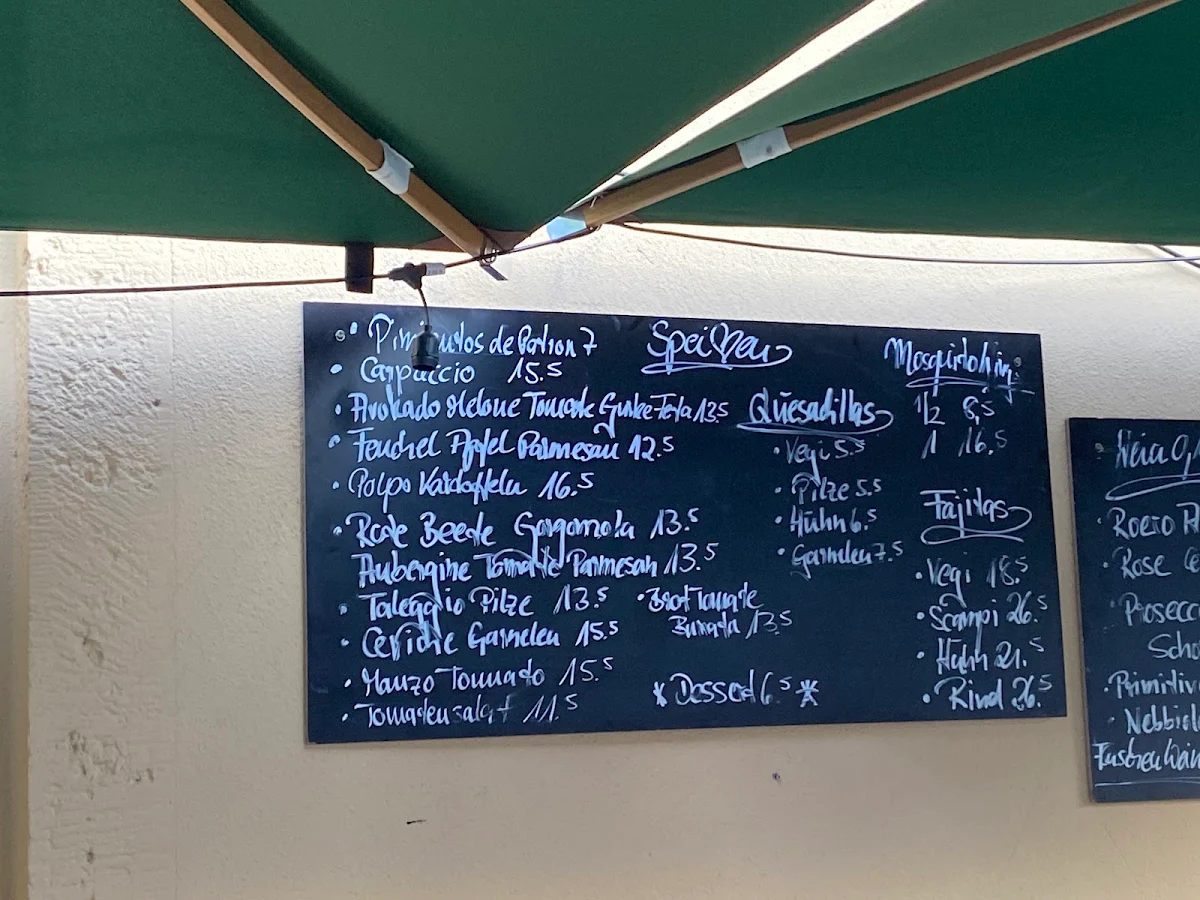 Speisen
• Pimientos de Patron 7
• Carpaccio 15.5
• Avokado Melone Tomate Gurke Feta 13.5
• Fenchel Apfel Parmesan 12.5
• Polpo Kartoffeln 16.5
• Rote Beete Gorgonzola 13.5
Aubergine Tomate Parmesan 13.5
• Taleggio Pilze 13.5
• Ceviche Garnelen 15.5
• Manzo Tonnato 15.5
• Tomatensalat 11.5
• Brot Tomate
Burrata 13.5
* Dessert 6.5 *
Quesadillas
• Vegi 5.5
• Pilze 5.5
• Huhn 6.5
• Garnelen 7.5
1/2 8.5
1 16.5
Fajitas
• Vegi 18.5
• Scampi 26.5
• Huhn 21.5
• Rind 26.5
• Roero
• Rose
• Prosecc
Scho
• Primitiv
• Nebbiol